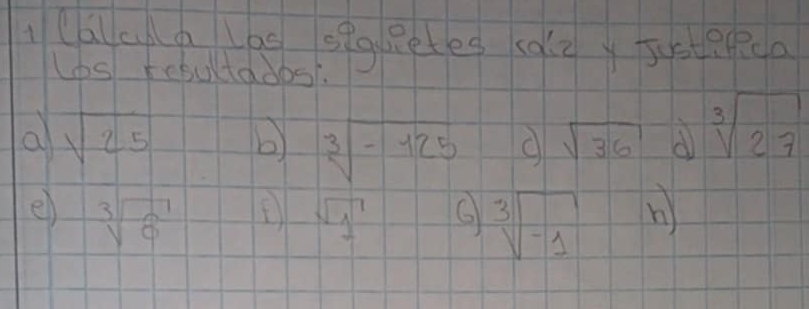 1 Cálcula las siguietes raíz y justifica
los resultados:
a) √25 b) ∛-125 c) √36 d) ∛27
e) ∛8 f) √1 G) ∛-1 h)